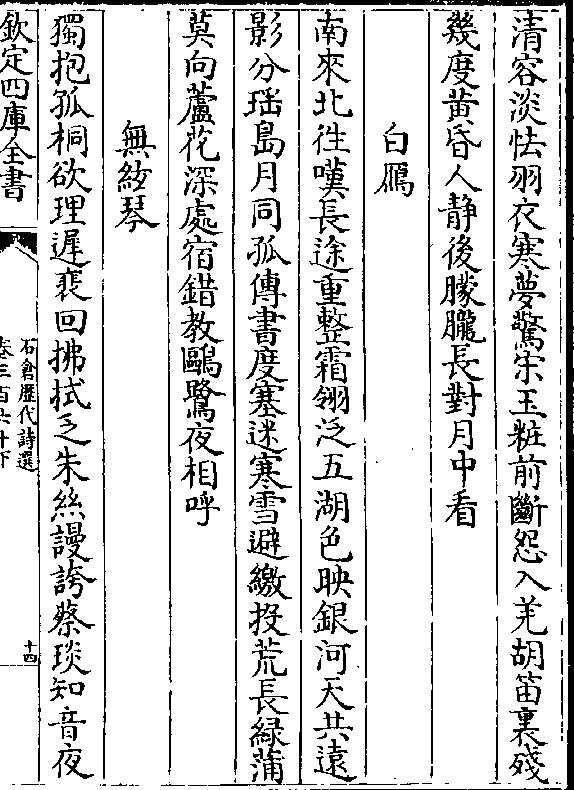 清容淡怯羽衣寒夢驚宋玉粧前斷怨入羌胡笛裏殘
幾度黄昏人静後朦朧長對月中看
白鴈
南來北徃嘆長途重整霜翎泛五湖色映銀河天共遠
影分瑶島月同孤傳書度塞迷寒雪避繳投荒長緑蒲
莫向蘆花深處宿錯教鷗鷺夜相呼
無絃琴
獨抱孤桐欲理遲裵回拂拭乏朱絲謾誇蔡琰知音夜
欽定四庫全書
石倉歷代詩選
十四